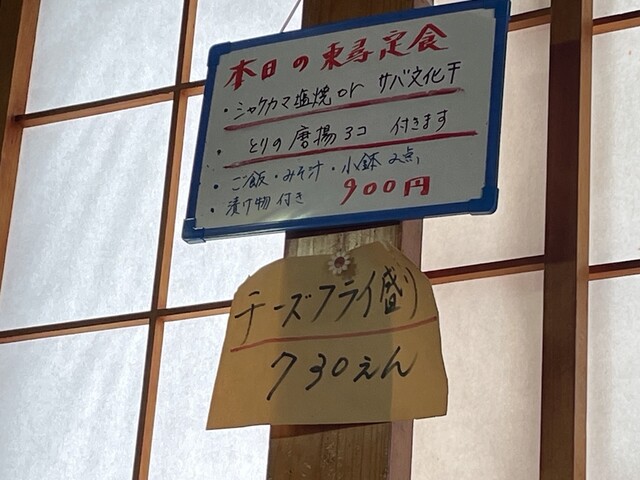 本日の東尋定食
・シャケカマ塩焼or サバ文化干
・とりの唐揚3コ 付きます
・ご飯・みそ汁・小鉢2点
・漬け物付き 900円
チーズフライ盛り
730えん